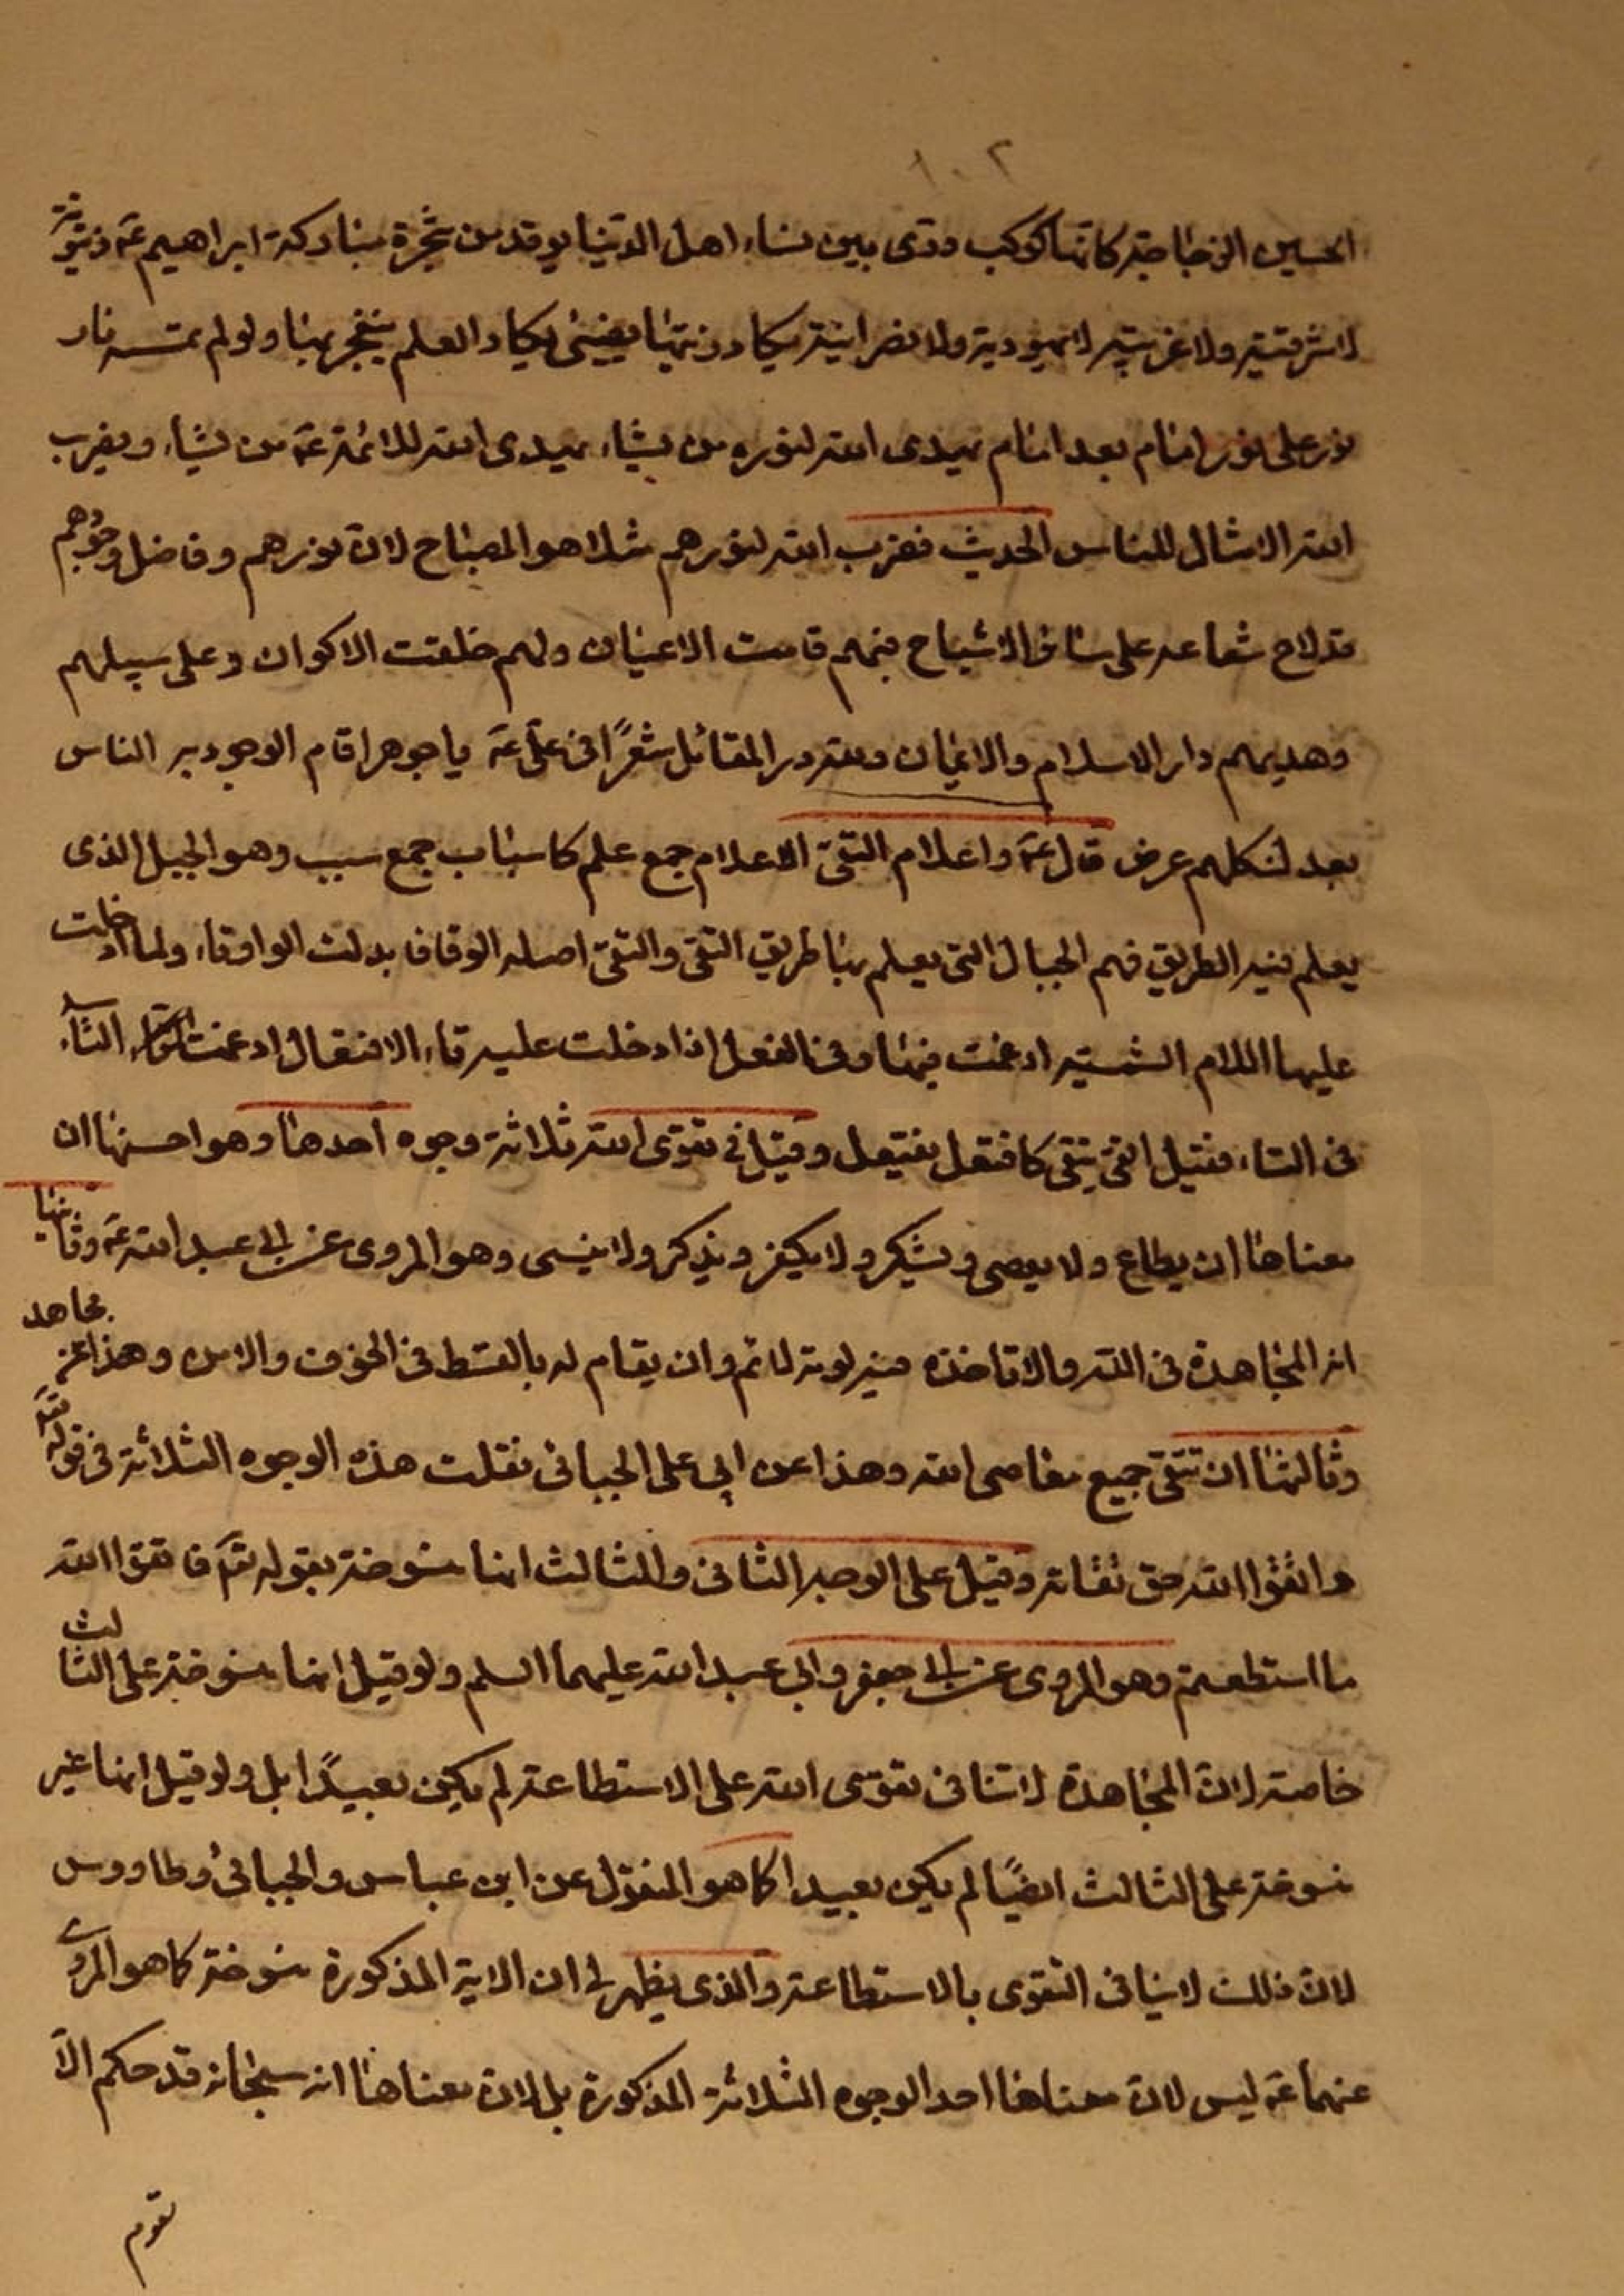 ١٠٢
الحسين الزجاجة كانها كوكب درى بين نساء اهل الدنيا يوقد من شجرة مباركة ابراهيم عَ زيتونة
لا شرقية ولا غربية لا يهودية ولا نصرانية يكاد زيتها يضيئ يكاد العلم ينفجر بها ولو لم تمسسه نار
نور على نور امام بعد امام يهدى الله لنوره من يشاء يهدى الله للائمة عَ من يشاء ويضرب
الله الامثال للناس الحديث فضرب الله لنورهم مثلا هو المصباح لان نورهم وفاضل وجودهم
قد لاح شعاعه على سائر الاشباح فبهم قامت الاعيان ولهم خلقت الاكوان وعلى سبيلهم
وهديهم دار الاسلام والايمان ولله در القائل شعرًا فى على عَ يا جوهرا قام الوجود به الناس
بعد لك كلهم عرض قال عَ واعلام التقىٰ الاعلام جمع علم كاسباب جمع سبب وهو الجبل الذى
يعلم فيه الطريق فهم الجبال التى يعلم بها طريق التقى والتقىٰ اصله الوقاف بدلت الواو تاء ولما ادخلت
عليها اللام الشمسية ادغمت فيها وفى الفعل اذا دخلت عليه تاء الافتعال ادغمت التاء
فى التاء فقيل اتقى يتقى كافتعل يفتعل وقيل فى تقوى الله ثلاثة وجوه احدها وهو احسنها ان
معناها ان يطاع ولا يعصى ويشكر ولا يكفر ويذكر ولا ينسى وهو المروى عن ابى عبد الله عَ وثانيها
انه المجاهدة فى الله والا تاخذه فيه لومة لائم وان يقام له بالقسط فى الخوف والامن وهذا عن مجاهد
وثالثها ان تتقى جميع معاصى الله وهذا عن ابى على الجبائى نقلت هذه الوجوه الثلاثة فى قوله تعَ
واتقوا الله حق تقاته وقيل على الوجه الثانى والثالث انها منسوخة بقوله تعَ فاتقوا الله
ما استطعتم وهو المروى عن ابى جعفر وابى عبد الله عليهما السلم ولو قيل انها منسوخة على الثالث
خاصة لان المجاهدة لا تنافى تقوى الله على الاستطاعة لم يكن بعيدًا بل ولو قيل انها غير
منسوخة على الثالث ايضًا لم يكن بعيدا كما هو المنقول عن ابن عباس والجبائى وطاووس
لان ذلك لا ينافى التقوى بالاستطاعة والذى يظهر لى ان الاية المذكورة منسوخة كما هو المروى
عنهما عَ ليس لان معناها احد الوجوه الثلاثة المذكورة بل لان معناها انه سبحانه قد حكم الا
تقوم